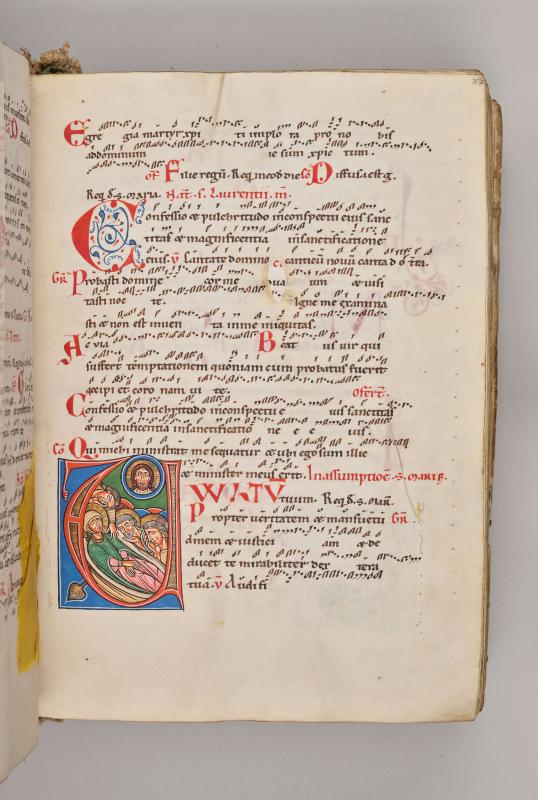 Egre gia martyr xpi ti implo ra pro no bis
ad dominum ie sum xpic tum.
Req. d. s. maria. Laurentii. m.
Confessio & pulchritudo inconspectu eius sanc
titas & magnificentia insanctificatione
eius. Cantate domino c. canticū novū canta
GR Probasti domine cor me & visi
tasti noc te. igne me examina
sti & non est inuen ta inme iniquitas.
A e via B eat us vir qui
suffert temptationem quoniam cum probatus fuerit
accipi et coro nam vi te.
Confessio & pulchritudo inconspectu e ius sanctitas
& magnificentia insanctificatio ne e e ius.
Qui michi ministrat me sequatur & ubi ego sum illic
& minister meus erit. In assumptione s. marie.
tuum. Req. d. s. mar.
Propter ueritatem & mansuetu GR
dinem & iustici am & de
ducet te mirabiliter dex tera
tua. v Audi fi